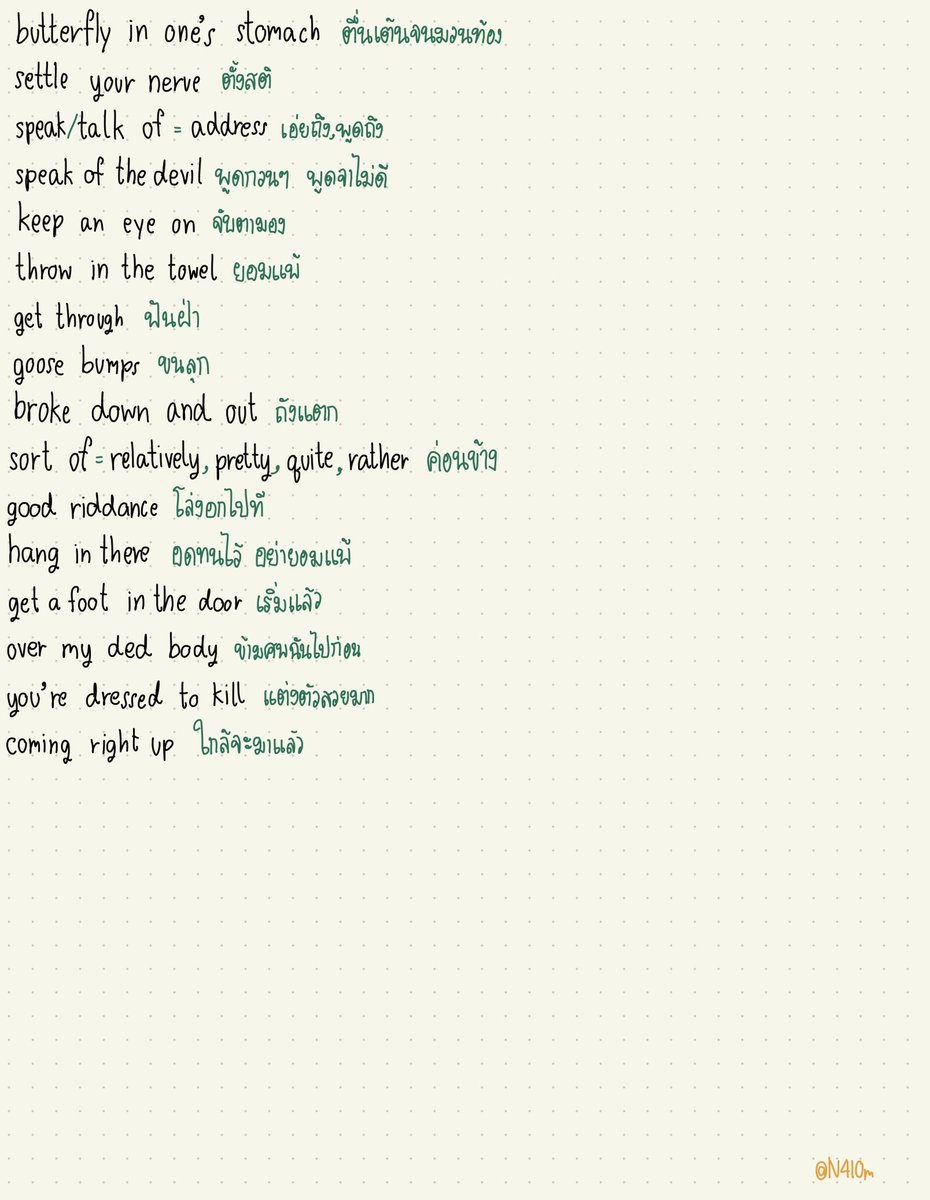 butterfly in one's stomach ตื่นเต้นจนมวนท้อง
settle your nerve ตั้งสติ
speak/talk of = address เอ่ยถึง,พูดถึง
speak of the devil พูดกวนๆ พูดจาไม่ดี
keep an eye on จับตามอง
throw in the towel ยอมแพ้
get through ฟันฝ่า
goose bumps ขนลุก
broke down and out ถังแตก
sort of = relatively, pretty, quite, rather ค่อนข้าง
good riddance โล่งอกไปที
hang in there อดทนไว้ อย่ายอมแพ้
get a foot in the door เริ่มแล้ว
over my ded body ข้ามศพฉันไปก่อน
you're dressed to kill แต่งตัวสวยมาก
coming right up ใกล้จะมาแล้ว
@N410m